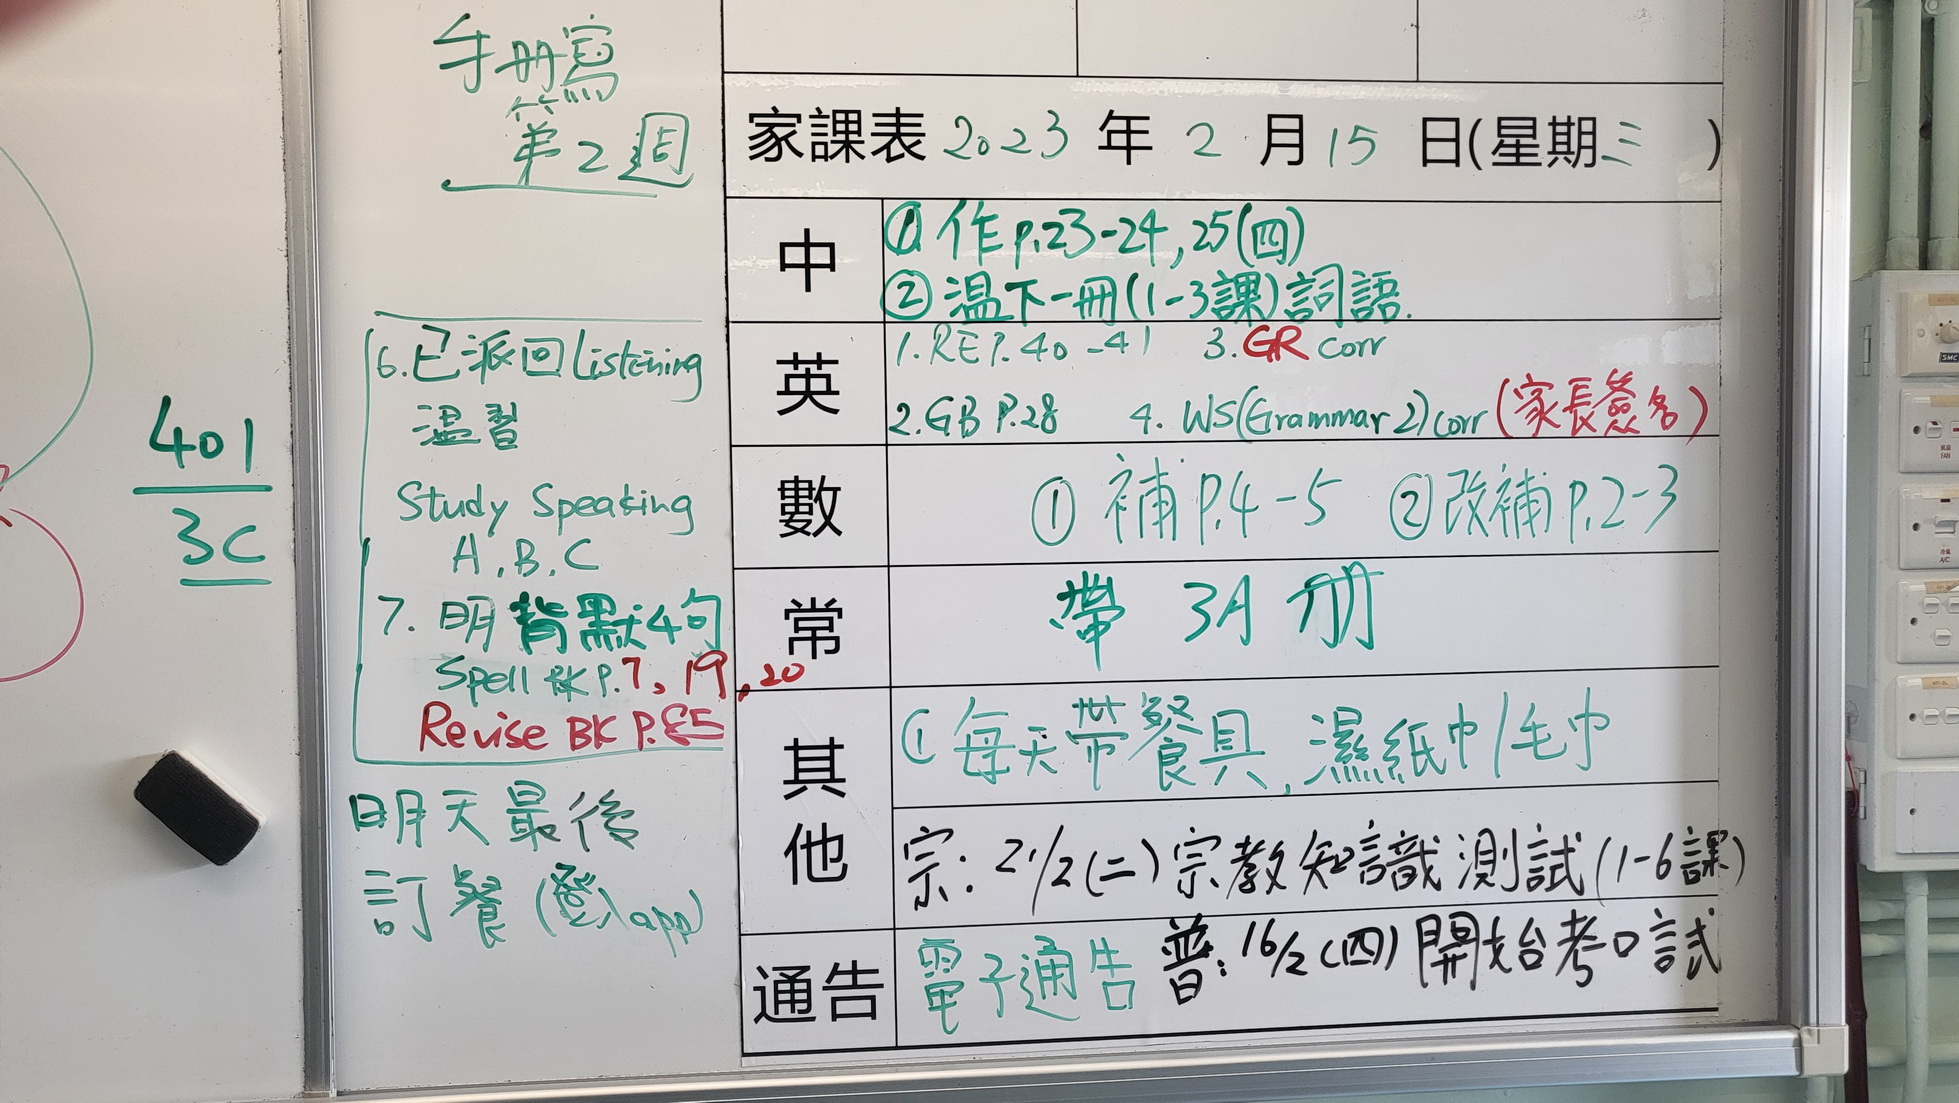 手册寫
第2週
6.已派回Listening
溫習
Study Speaking
A,B,C
7.明背默4句
Spell BK P.7,19,20
Revise BK P.85
明天最後
訂餐(登入app)
401
3C
家課表2023年2月15日(星期三)
中
①作P.23-24,25(四)
②溫下一冊(1-3課)詞語.
英
1.RE P.40-41 3.GR corr
2.GB P.28 4.WS(Grammar 2)corr(家長簽名)
數
①補P.4-5 ②改補P.2-3
常
帶3A冊
其他
①每天帶餐具,濕紙巾/毛巾
宗:21/2(二)宗教知識測試(1-6課)
通告
電子通告 普:16/2(四)開始考口試
SMC
FAN
A/C